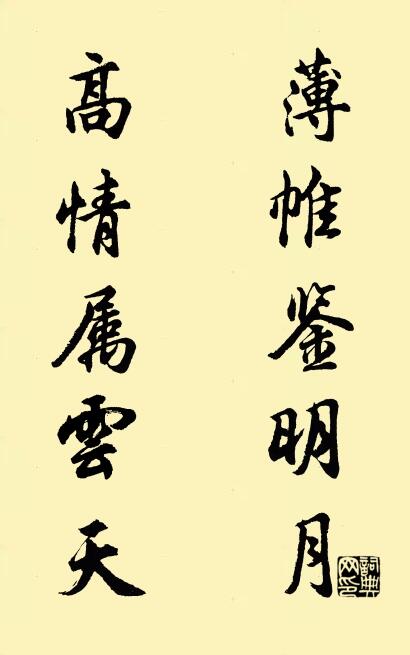 薄帷鉴明月
高情属雲天
詞典网印